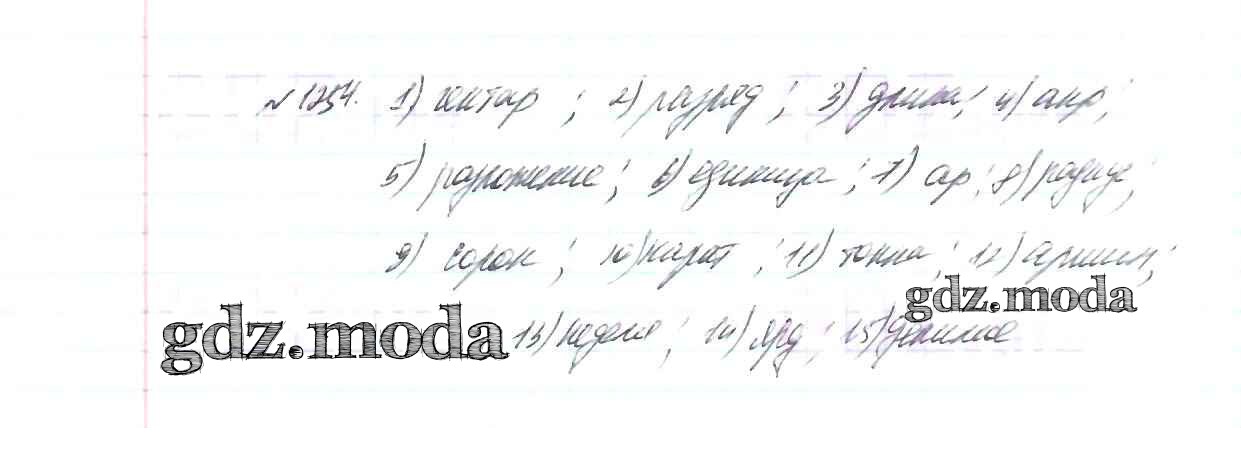 № 1254. 1) гектар; 2) разряд; 3) длина; 4) акр;
5) разложение; 6) единица; 7) ар; 8) радиус;
9) сорок; 10) карат; 11) тонна; 12) аршин;
gdz.moda
gdz.moda 13) неделя; 14) ярд; 15) делимое